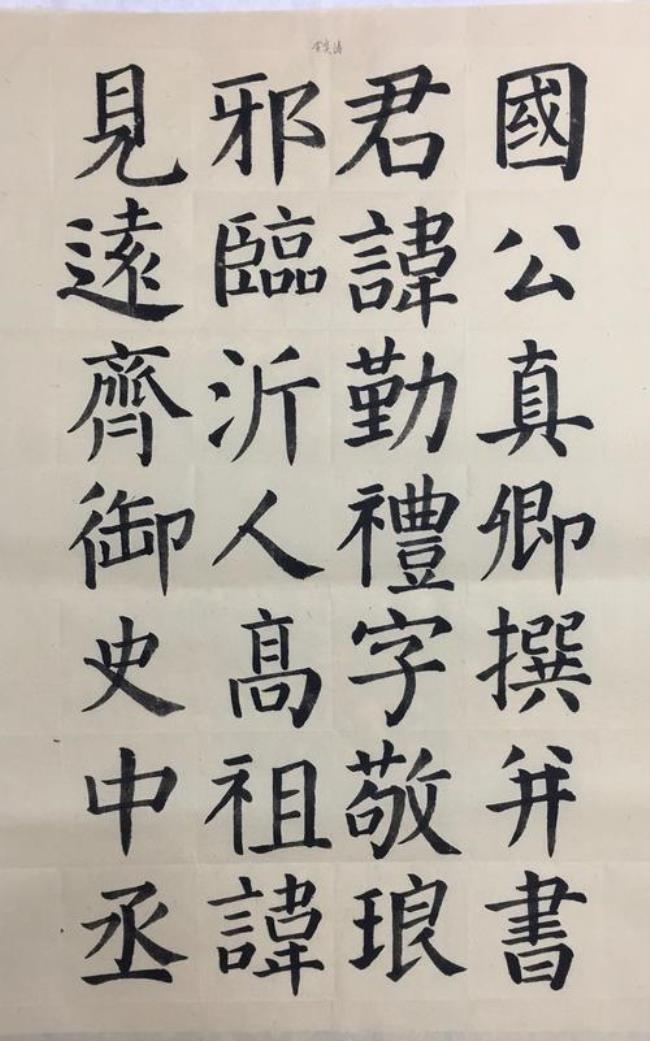 國公真卿撰并書
君諱勤禮字敬琅
邪臨沂人高祖諱
見遠齊御史中丞